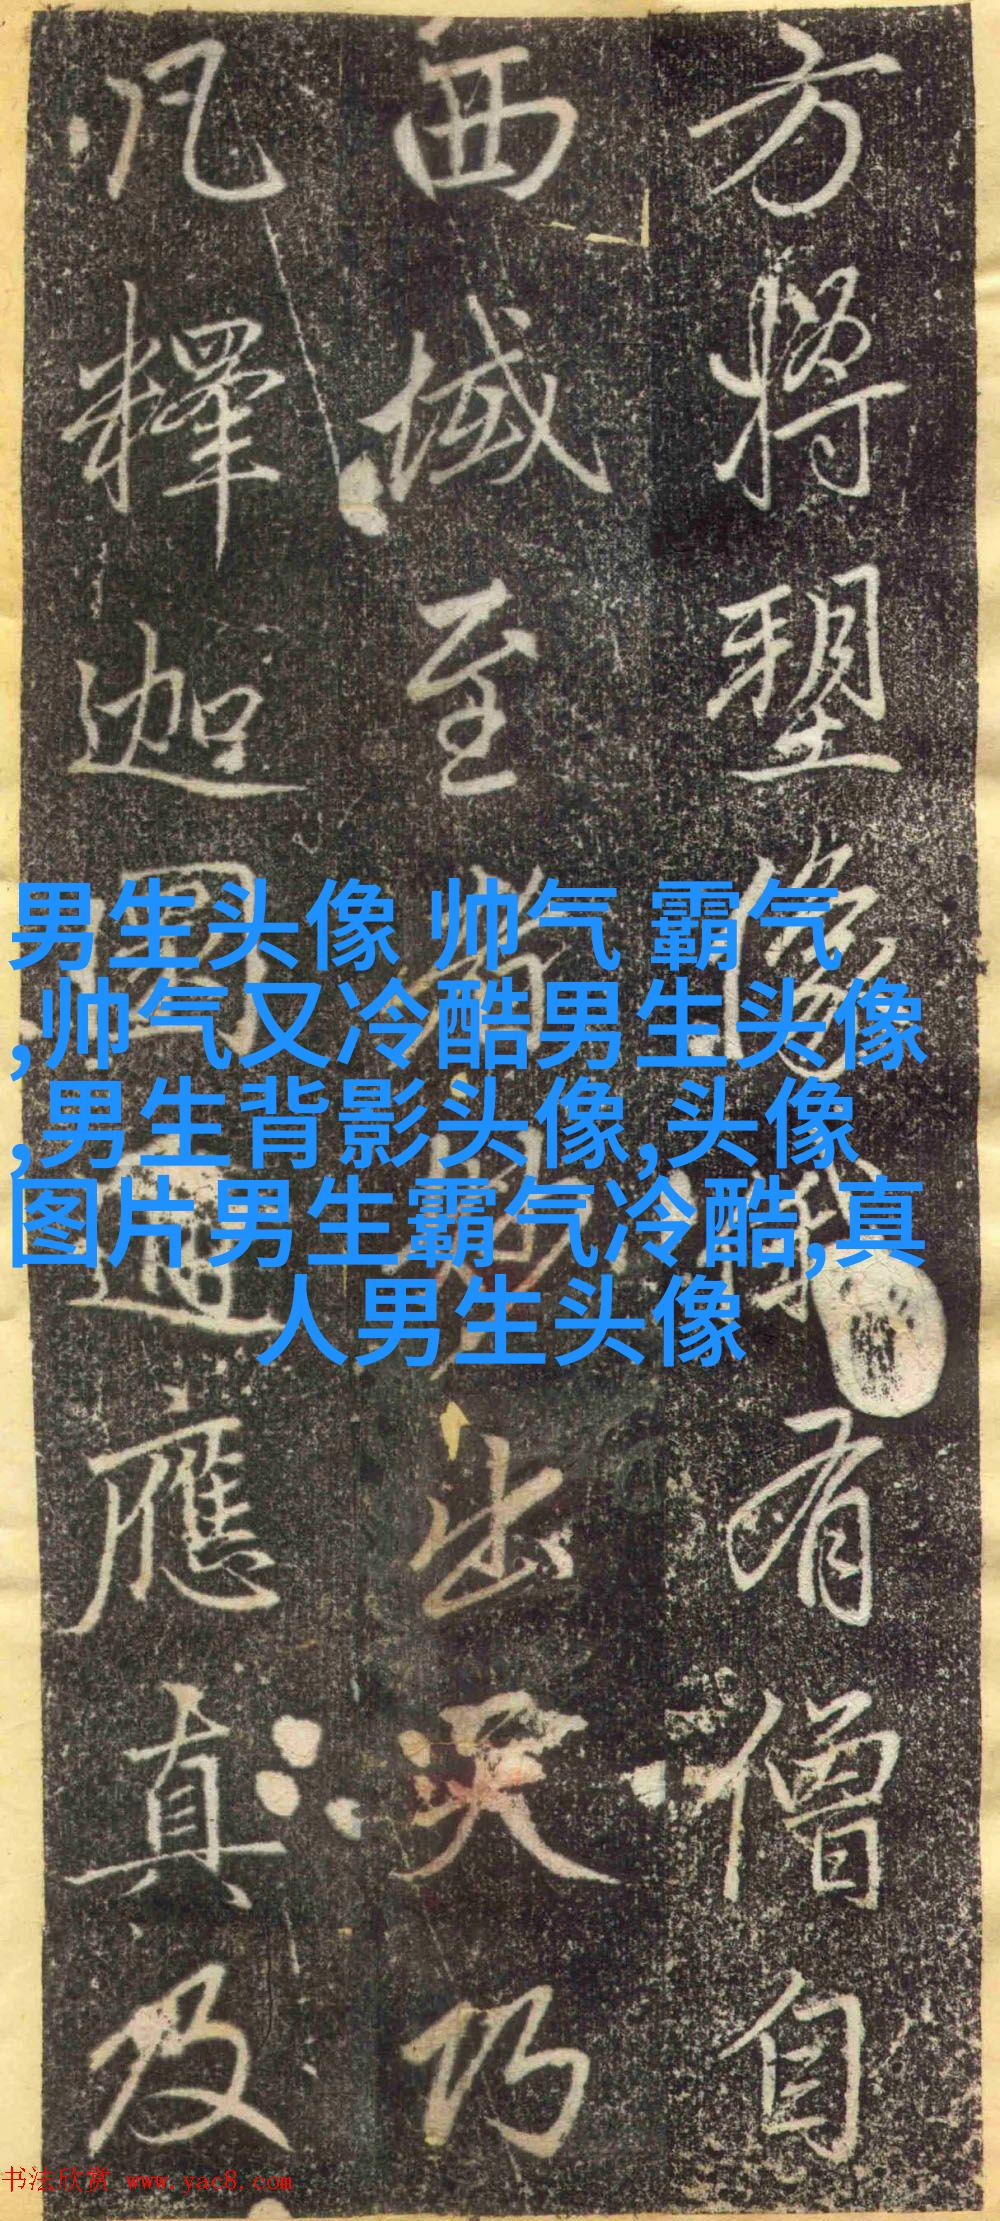 方將塑像有僧自
西域至者思出天巧
凡釋迦圓通應真及
男生头像 帅气 霸气
,帅气又冷酷男生头像
,男生背影头像,头像
图片男生霸气冷酷,真
人男生头像
书法欣赏 www.yac8.com